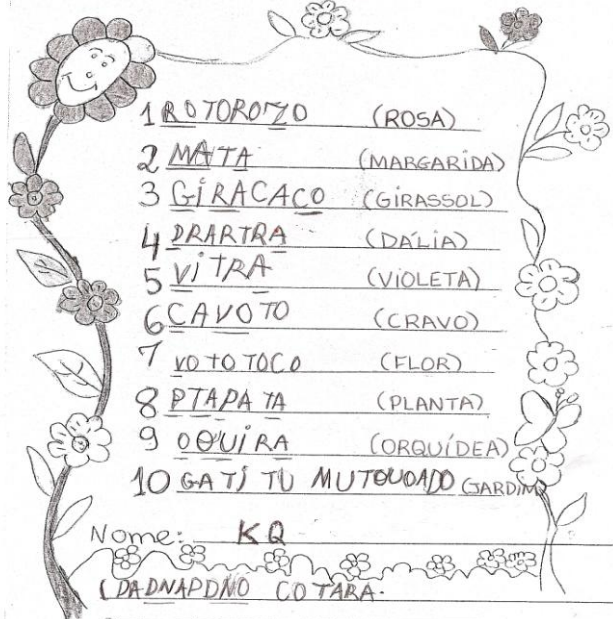 1 ROTOROZO (ROSA)
2 MATA (MARGARIDA)
3 GiRACAÇO (GIRASSOL)
4 DRARTRA (DÁLIA)
5 ViTRA (VIOLETA)
6 CAVOTO (CRAVO)
7 VOTOTOCO (FLOR)
8 PTAPATA (PLANTA)
9 OQUiRA (ORQUÍDEA)
10 GATI TU (JARDIM)
Nome: KQ
COTARA.